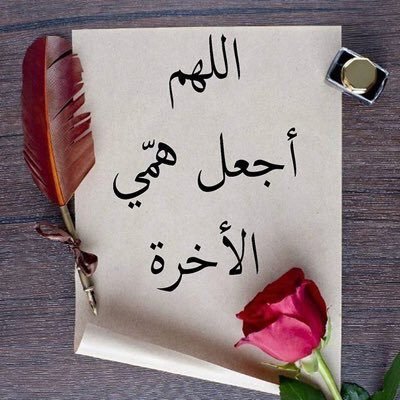 اللهم
أجعل همّي
الأخرة